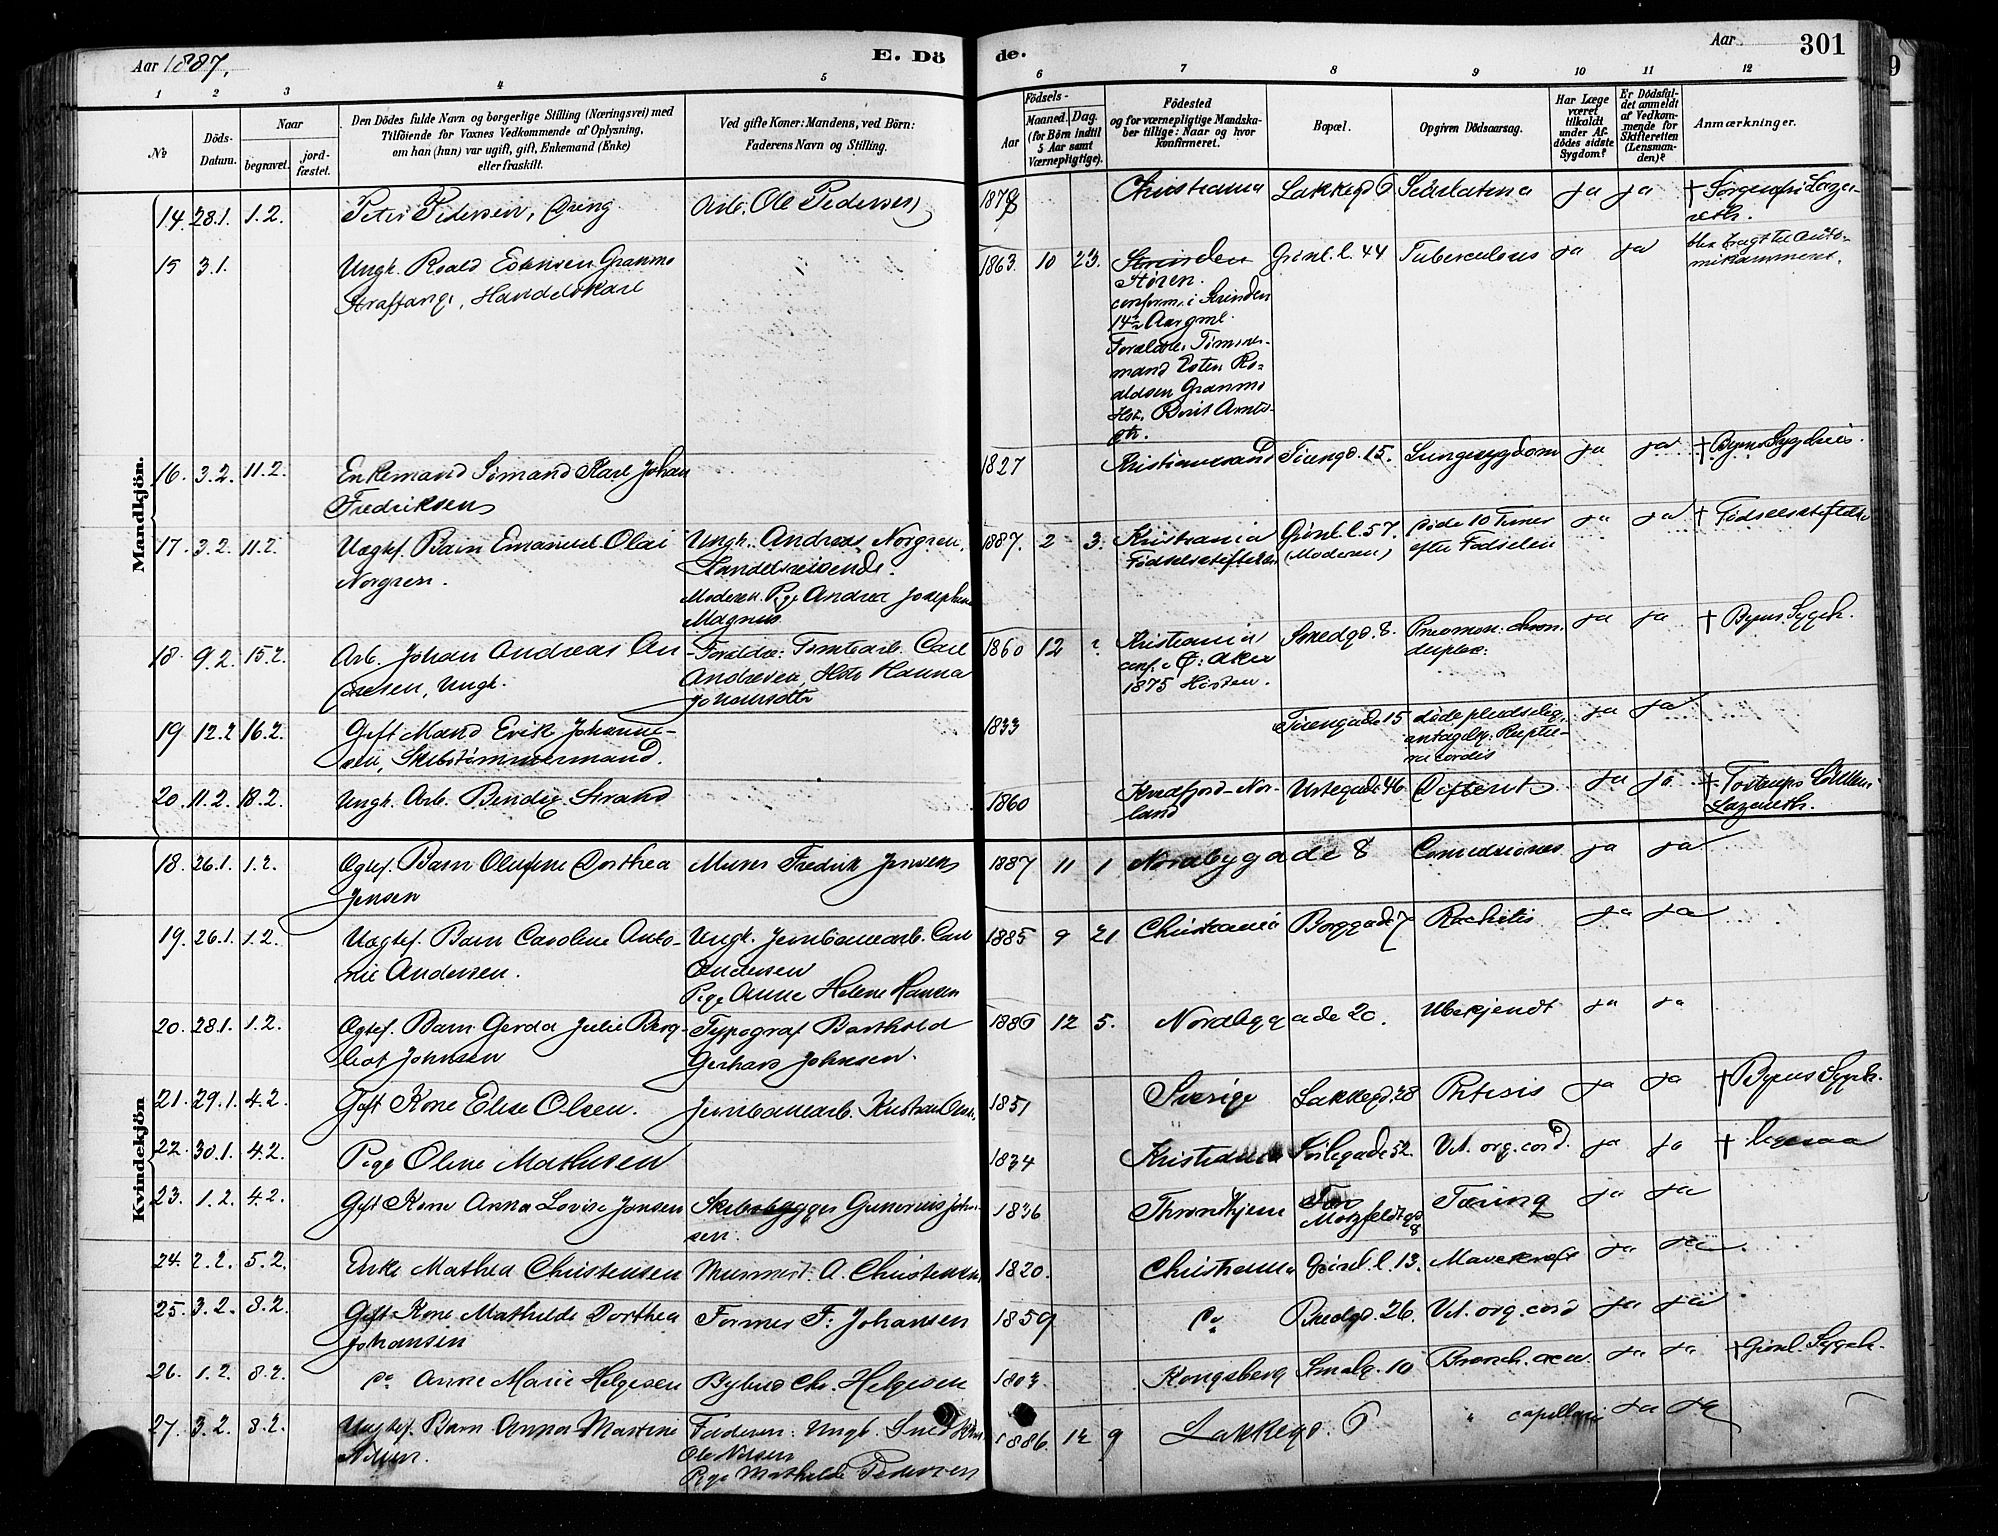 Aar 1887.
E. Dö
de.
Aar
301
1 2 3 4 5 6 7 8 9 10 11 12
No
Döds-Datum.
Naar
begravet.
jord-fæstet.
Den Dödes fulde Navn og borgerlige Stilling (Næringsvei) med
Tilföiende for Voxnes Vedkommende af Oplysning,
om han (hun) var ugift, gift, Enkemand (Enke)
eller fraskilt.
Ved gifte Koner: Mandens, ved Börn:
Faderens Navn og Stilling.
Födsels-
Aar
Maaned. Dag.
(for Börn indtil
5 Aar samt
Værnepligtige).
Födested
og for værnepligtige Mandska-
ber tillige: Naar og hvor
konfirmeret.
Bopæl.
Opgiven Dödsaarsag.
Har Læge
været
tilkaldt
under Af-
dödes sidste
Sygdom?
Er Dödsfal-
det anmeldt
af Vedkom-
mende for
Skifteretten
(Lensman-
den)?
Anmærkninger.
Mandkjön.
14. 28.1. 1.2. Peter Pedersen, Dreng Arb. Ole Pedersen 1878 Christiania Lakkegd 6 Skarlatina ja ja † Sorgenfri Laza-
reth.
15 3.1. Ungk. Roald Estensen Granmo 1863. 10 23. Strinden Grønl. l. 44 Tuberculosis ja ja blev bragt til Anto-
mikammeret.
Straffange, Handelskarl
Støren.
conform. i Strinden
14 Aar gml.
Forældre: Tømmer-
mand Esten Ro-
aldsen Granmo
Hst. Berit Arnts-
dtr.
16. 3.2. 11.2. Enkemand Sømand Karl Johan
Fredriksen 1827 Kristianssand Tøiengd. 15. Lungesygdom ja ja † Byens Sygehus.
17. 3.2. 11.2. Uægtef. Barn Emanuel Olai
Norgren. Ungk. Andreas Norgren,
Handelsreisende.
Moderen: Pige Andrea Josephine
Magnus 1887. 2 3. Kristiania
Fødselsstiftelsen Grønl. l. 57.
(Moderen) døde 10 Timer
efter Fødselen ja ja † Fødselsstiftelse
18. 9.2. 15.2. Arb. Johan Andreas An
dresen, Ungk. Forældre: Tomtearb. Carl
Andresen, Hst. Hanna
Johansdtr 1860 12 ? Kristiania
conf. i Ø: Aker
1875 Høsten. Smedgd. 8. Pneumon. chron.
duplex. ja ja † Byens Sygeh.
19 12.2 16.2. Gift Mand Erik Johanne-
sen, Skibstømmermand. 1833 Tøiengade 15 døde pludselig,
antagelig: Ruptu-
ra cordis ja ja
20. 11.2. 18.2. Ungk. Arb. Bendix Strand 1860 Kvæfjord Nor-
land Urtegade 46 Difterit ja ja † Tostrups Løkkens
Lazareth.
Kvindekjön
18. 26.1. 1.2. Ægtef. Barn Olufine Dorthea
Jensen Murer Fredrik Jensen 1887 11 1 Nordbygade 8 Convulsiones ja ja
19. 26.1. 1.2. Uægtef. Barn Caroline Anto-
nie Andersen. Ungk. Jernbanearb. Carl
Andersen
Pige Anne Helene Hansen 1885 9 21 Christiania Borggade 7 Rachitis ja ja
20. 28.1. 1.2. Ægtef. Barn Gerda Julie Berg-
liot Johnsen Typograf Barthold
Gerhard Johnsen. 1886 12 5. Nordbygade 20. Ubekjendt ja ja
21. 29.1. 4.2. Gift Kone Elise Olsen. Jernbanearb. Kristian Olsen 1851 Sverige Lakkegd. 28 Phtisis ja ja † Byens Sygeh.
22. 30.1. 4.2. Pige Oline Mathisen 1834 Kristiania Sørlegade 52. Vit. org. cord. ja ja † ligesaa
23. 1.2. 4.2. Gift Kone Anna Lovise Jansen Skibsbygger Gunerius Johan-
sen. 1836 Thronhjem
Motzfeldtsgd
8 Tæring ja ja
24. 2.2. 5.2. Enke Mathea Christensen Murmest. A. Christensen 1820. Christiania Grønl. l. 13. Mavekræft ja ja
25. 3.2. 8.2. Gift Kone Mathilde Dorthea
Johansen Former F. Johansen 1859 Do Bredgd. 26. Vit. org. cord ja ja
26. 1.2. 8.2. Do Anne Marie Helgesen Bybud Chr. Helgesen 1803. Kongsberg Smalg. 10 Bronch. acu. ja ja † Grønl. Sygeh.
27. 3.2. 8.2. Uægtef. Barn Anna Martine
Nilsen. Faderen: Ungk. Smed
Ole Nilsen
Pige Mathilde Pedersen 1886. 12 9 Lakkegd. 6 " capillaris ja ja